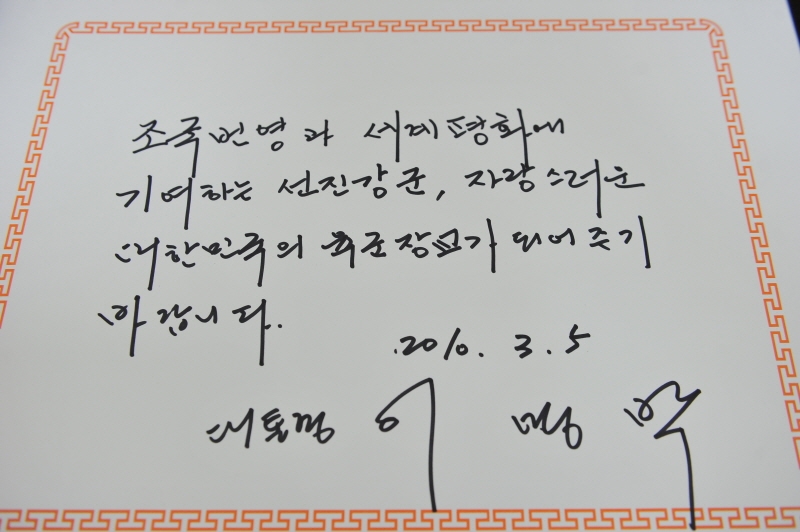 조국번영과 세계평화에
기여하는 선진강군, 자랑스러운
대한민국의 육군장교가 되어주기
바랍니다.
2010. 3. 5
대통령 이 명 박